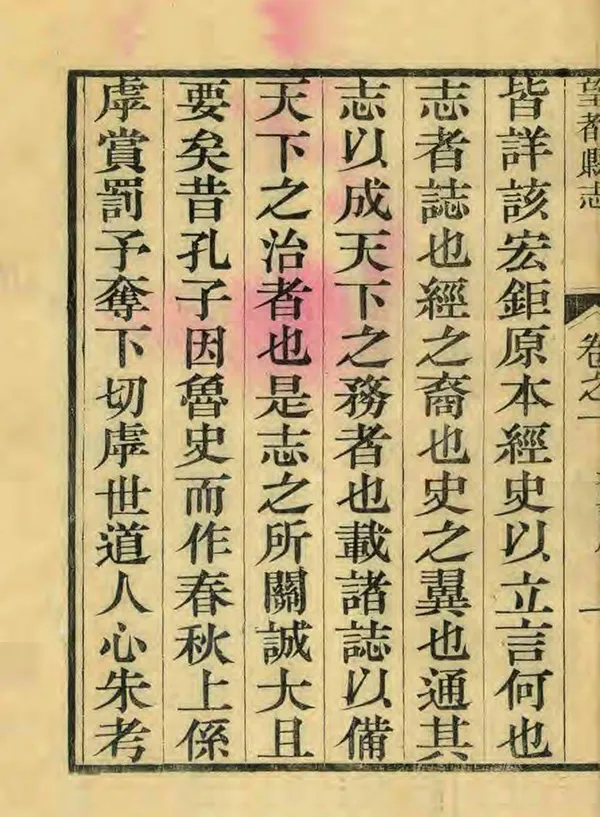 望都縣志
卷之一
一
皆詳該宏鉅原本經史以立言何也
志者誌也經之裔也史之翼也通其
志以成天下之務者也載諸誌以備
天下之治者也是志之所關誠大且
要矣昔孔子因魯史而作春秋上係
虖賞罰予奪下切虖世道人心朱考